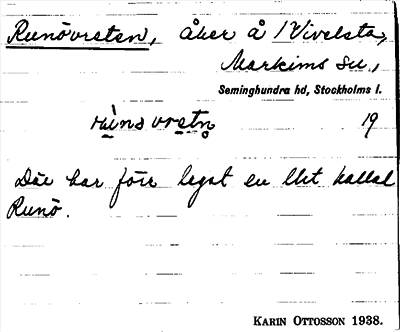 Runövreten, åker å 1 Vivelsta,
Markims sn.,
Seminghundra hd, Stockholms l.
19
Där har förr legat en lht kallat
Runö.
KARIN OTTOSSON 1938.